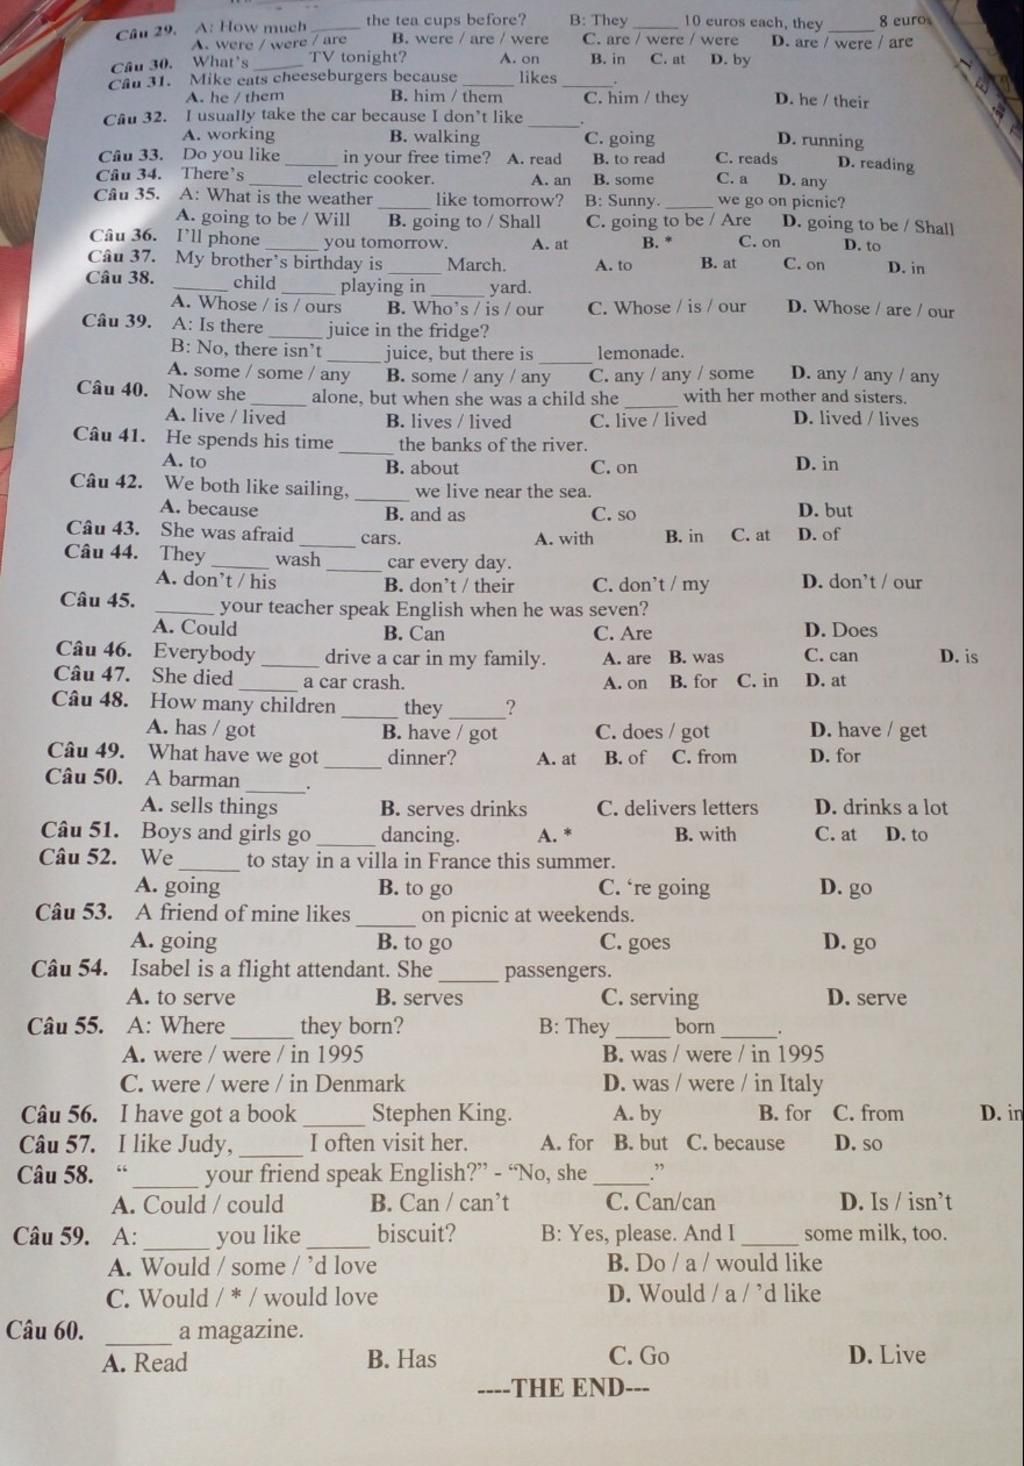 Câu 29. A: How much ______ the tea cups before? B: They _____ 10 euros each, they _____ 8 euros
A. were / were / are B. were / are / were C. are / were / were D. are / were / are
Câu 30. What's _____ TV tonight? A. on B. in C. at D. by
Câu 31. Mike eats cheeseburgers because _____ likes _____.
A. he / them B. him / them C. him / they D. he / their
Câu 32. I usually take the car because I don't like _____.
A. working B. walking C. going D. running
Câu 33. Do you like _____ in your free time? A. read B. to read C. reads D. reading
Câu 34. There's _____ electric cooker. A. an B. some C. a D. any
Câu 35. A: What is the weather _____ like tomorrow? B: Sunny. _____ we go on picnic?
A. going to be / Will B. going to / Shall C. going to be / Are D. going to be / Shall
Câu 36. I'll phone _____ you tomorrow. A. at B. * C. on D. to
Câu 37. My brother's birthday is _____ March. A. to B. at C. on D. in
Câu 38. _____ child _____ playing in _____ yard.
A. Whose / is / ours B. Who's / is / our C. Whose / is / our D. Whose / are / our
Câu 39. A: Is there _____ juice in the fridge?
B: No, there isn't _____ juice, but there is _____ lemonade.
A. some / some / any B. some / any / any C. any / any / some D. any / any / any
Câu 40. Now she _____ alone, but when she was a child she _____ with her mother and sisters.
A. live / lived B. lives / lived C. live / lived D. lived / lives
Câu 41. He spends his time _____ the banks of the river.
A. to B. about C. on D. in
Câu 42. We both like sailing, _____ we live near the sea.
A. because B. and as C. so D. but
Câu 43. She was afraid _____ cars. A. with B. in C. at D. of
Câu 44. They _____ wash _____ car every day.
A. don't / his B. don't / their C. don't / my D. don't / our
Câu 45. _____ your teacher speak English when he was seven?
A. Could B. Can C. Are D. Does
Câu 46. Everybody _____ drive a car in my family. A. are B. was C. can D. is
Câu 47. She died _____ a car crash. A. on B. for C. in D. at
Câu 48. How many children _____ they _____?
A. has / got B. have / got C. does / got D. have / get
Câu 49. What have we got _____ dinner? A. at B. of C. from D. for
Câu 50. A barman _____.
A. sells things B. serves drinks C. delivers letters D. drinks a lot
Câu 51. Boys and girls go _____ dancing. A. * B. with C. at D. to
Câu 52. We _____ to stay in a villa in France this summer.
A. going B. to go C. 're going D. go
Câu 53. A friend of mine likes _____ on picnic at weekends.
A. going B. to go C. goes D. go
Câu 54. Isabel is a flight attendant. She _____ passengers.
A. to serve B. serves C. serving D. serve
Câu 55. A: Where _____ they born? B: They _____ born _____.
A. were / were / in 1995 B. was / were / in 1995
C. were / were / in Denmark D. was / were / in Italy
Câu 56. I have got a book _____ Stephen King. A. by B. for C. from D. in
Câu 57. I like Judy, _____ I often visit her. A. for B. but C. because D. so
Câu 58. "_____ your friend speak English?" - "No, she _____."
A. Could / could B. Can / can't C. Can/can D. Is / isn't
Câu 59. A: _____ you like _____ biscuit? B: Yes, please. And I _____ some milk, too.
A. Would / some / 'd love B. Do / a / would like
C. Would / * / would love D. Would / a / 'd like
Câu 60. _____ a magazine.
A. Read B. Has C. Go D. Live
----THE END---